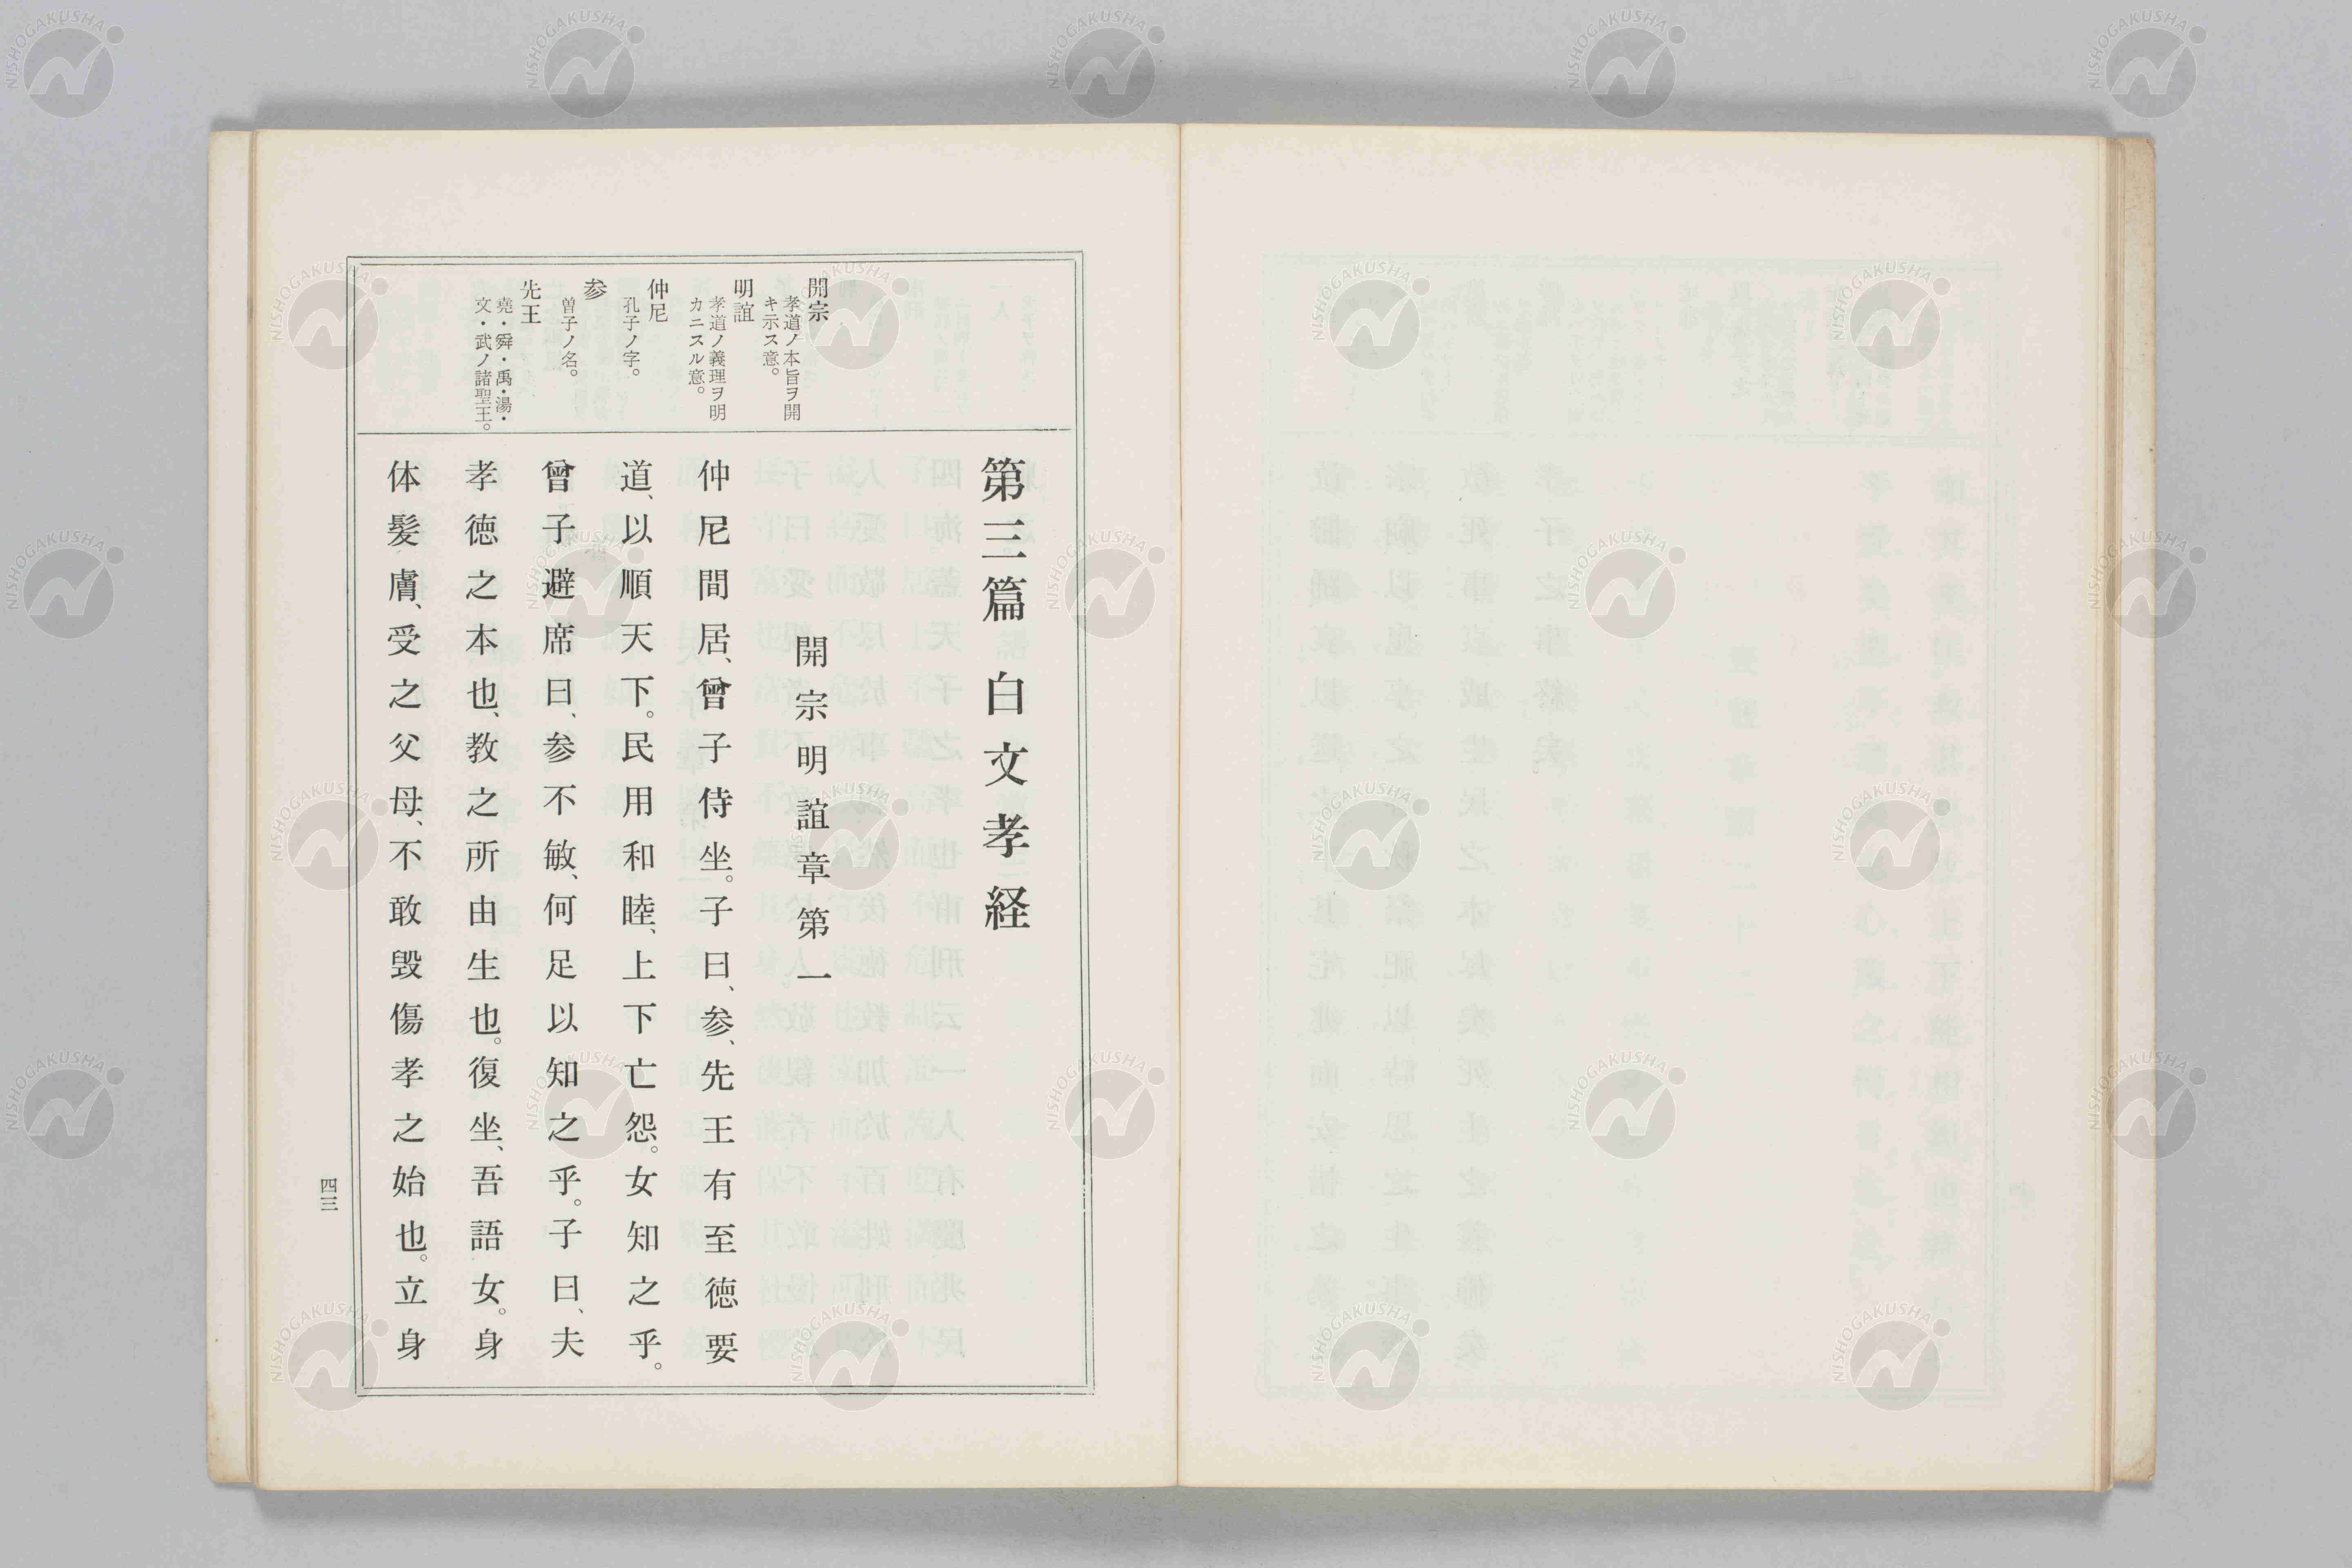 第三篇 白文孝経
開宗明誼章第一
仲尼間居、曾子侍坐。子曰、参、先王有至徳要
道、以順天下。民用和睦、上下亡怨。女知之乎。
曾子避席曰、参不敏、何足以知之乎。子曰、夫
孝徳之本也、教之所由生也。復坐、吾語女。身
体髪膚、受之父母、不敢毀傷孝之始也。立身
開宗
孝道ノ本旨ヲ開
キ示ス意。
明誼
孝道ノ義理ヲ明
カニスル意。
仲尼
孔子ノ字。
参
曽子ノ名。
先王
堯・舜・禹・湯・
文・武ノ諸聖王。
四三
NISHOGAKUSHA